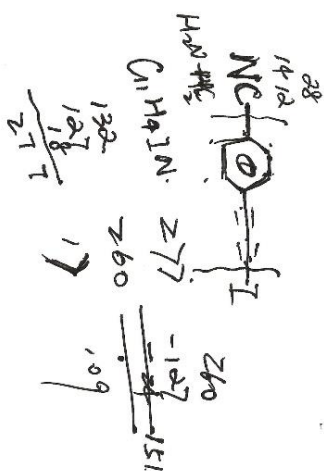 28
14 12
NC I
H₂N-NH₂
C₁₁H₄IN.
277
260
17
132
127
18
277
260
-127
151